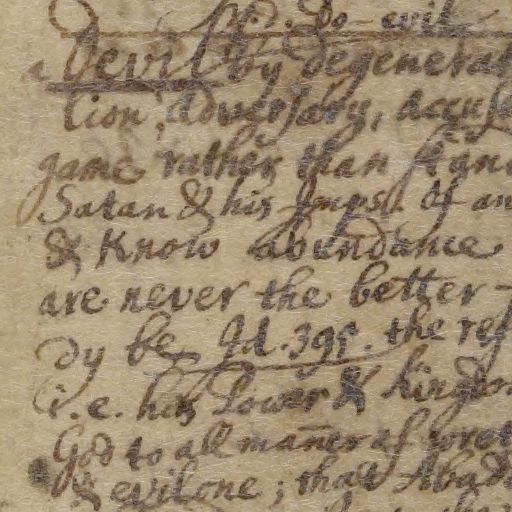 Do evil
a Devil by degenerat
lion, adversary, accuse
game rather than stand
Satan & his Imps. Of an
& Know abundance
are never the better
dy be Id. 395. the ref
i.e. his Power & kingdo
God to all maner of
& evil one; that Abad